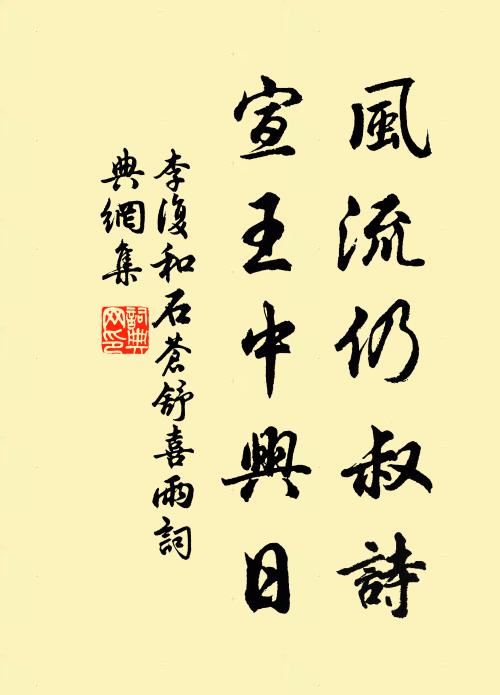 風流仍叔詩
宣王中興日
李復和石蒼舒喜雨詞
典網集
詞典網印